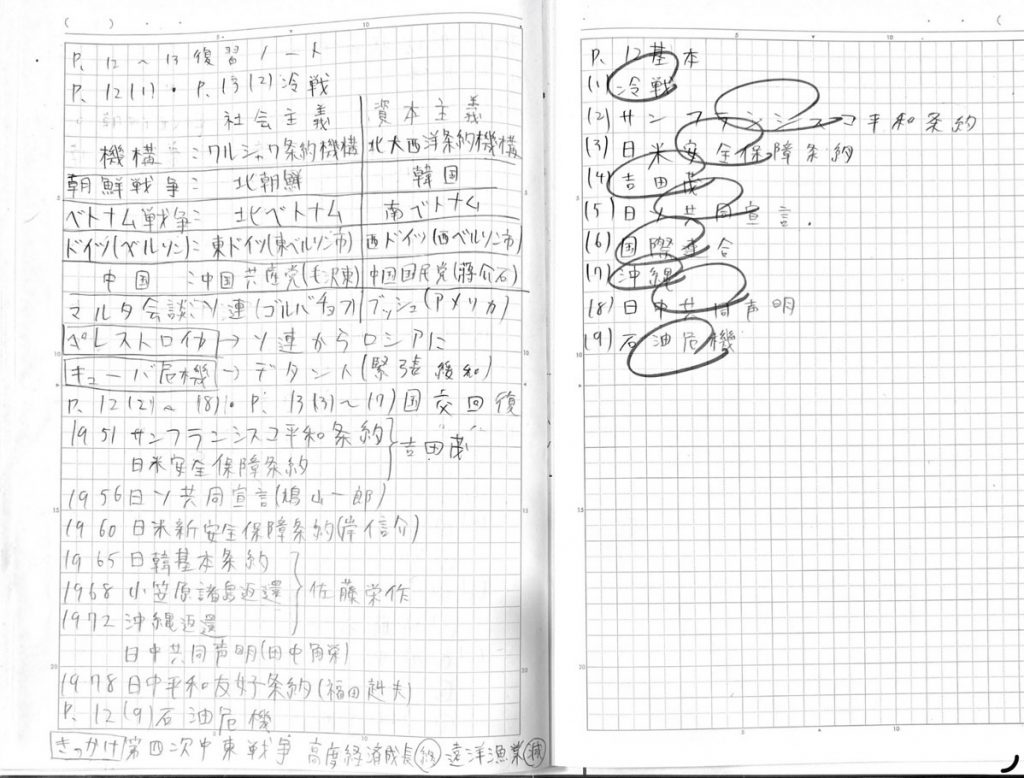 P. 12 ~ 13 復習ノート
P. 12(1)・P. 13(2)冷戦
社会主義 資本主義
機構:ワルシャワ条約機構 北大西洋条約機構
朝鮮戦争:北朝鮮 韓国
ベトナム戦争:北ベトナム 南ベトナム
ドイツ(ベルソン):東ドイツ(東ベルソン市) 西ドイツ(西ベルソン市)
中国:中国共産党(毛沢東) 中国国民党(蔣介石)
マルタ会談:ソ連(ゴルバチョフ) ブッシュ(アメリカ)
ペレストロイカ→ソ連からロシアに
キューバ危機→デタント(緊張緩和)
P. 12(2)~(8)・P. 13(3)~(7)国交回復
1951 サンフランシスコ平和条約
日米安全保障条約 吉田茂
1956 日ソ共同宣言(鳩山一郎)
1960 日米新安全保障条約(岸信介)
1965 日韓基本条約
1968 小笠原諸島返還 佐藤栄作
1972 沖縄返還
日中共同声明(田中角栄)
1978 日中平和友好条約(福田赳夫)
P. 12(9)石油危機
きっかけ 第四次中東戦争 高度経済成長終 遠洋漁業減
P. 12基本
(1)冷戦
(2)サンフランシスコ平和条約
(3)日米安全保障条約
(4)吉田茂
(5)日ソ共同宣言.
(6)国際連合
(7)沖縄
(8)日中共同声明
(9)石油危機